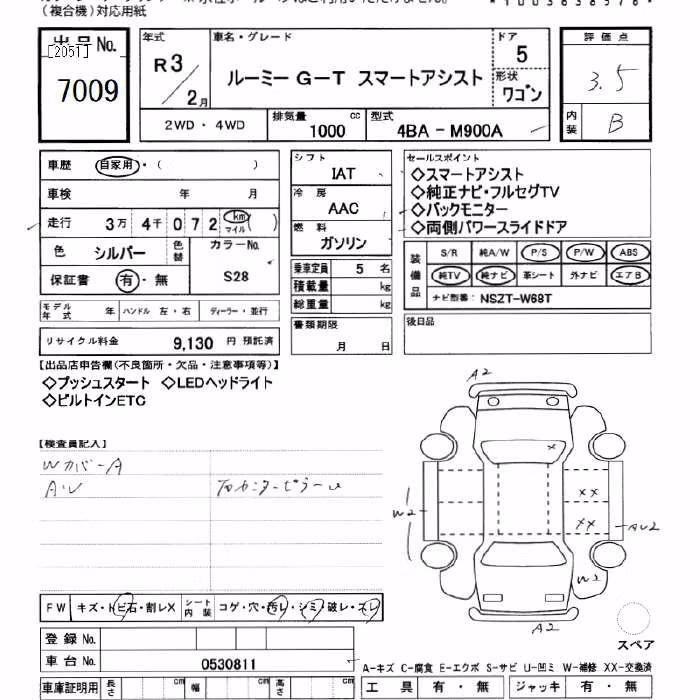 (複合機)対応用紙
出品No.
[2051]
7009
年式 車名・グレード ドア 評価点
R3 2月 ルーミー G－T スマートアシスト 5 3.5
形状 ワゴン
内装 B
2WD・4WD 排気量 1000 cc 型式 4BA－M900A
車歴 自家用・( )
車検 年 月
走行 3万 4千 0 7 2 km マイル ( )
色 シルバー 色替 カラーNo. S28
保証書 有・無
モデル年式 年 ハンドル 左・右 ディーラー・並行
リサイクル料金 9,130 円 預託済
シフト IAT
冷房 AAC
燃料 ガソリン
乗車定員 5 名
積載量 kg
総重量 kg
書類期限 月 日
セールスポイント
◇スマートアシスト
◇純正ナビ・フルセグTV
◇バックモニター
◇両側パワースライドドア
装備品 S/R 純A/W P/S P/W ABS
純TV 純ナビ 革シート 外ナビ エアB
ナビ型番: NSZT-W68T
後日品
【出品店申告欄(不良箇所・欠品・注意事項等)】
◇プッシュスタート ◇LEDヘッドライト
◇ビルトインETC
【検査員記入】
Wカバー A
A2
A2
W2
XX
XX
AU2
W2
A2
FW キズ・トビ石・割レX シート内装 コゲ・穴・汚レ・シミ・破レ・スレ
スペア
登録No.
車台No. 0530811
A-キズ C-腐食 E-エクボ S-サビ U-凹ミ W-補修 XX-交換済
車庫証明用 長さ cm 幅 cm 高さ cm 工具 有・無 ジャッキ 有・無